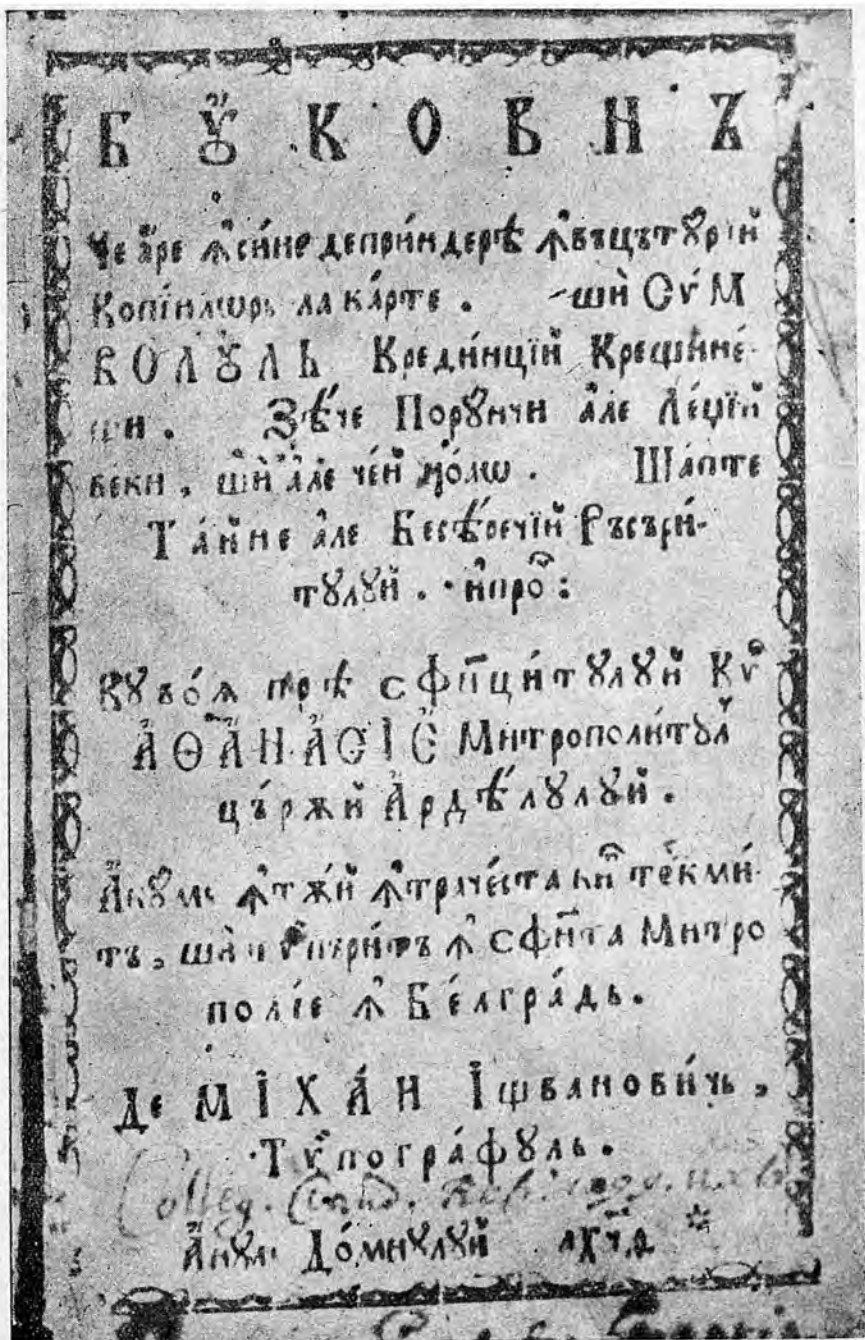 БꙊКОВНЪ
Че а҆ре ꙟ҆сине депри́ндерѣ ꙟ҆въцътꙋ́рїй
Копі́илѡрь ла ка́рте . ши Сѵ́М
ВОЛꙊЛЬ Креди́нцїй Креши́не-
щи . Зѣ́че Порꙋнчи а҆ле Ле́џїй
веки , ши́ а҆ле че́й но́ло . Ша́пте
Та́йне а҆ле Бесѣ́речїй Ръсъри-
тꙋлꙋй . и҆про :
Кꙋво́ѧ прѣ сфн҃ци́тꙋлꙋй Кѵ҃
А҆ѲА҆НА҆СІЄ Митрополи́тꙋл
цъ́рїй А҆рдѣ́лꙋлꙋй .
А҆кꙋмь ꙟ҆тѫ́й ꙟ҆траче́ста кип те́кми-
тъ , ши́ типъри́тъ ꙟ҆ сфн҃та Митро
поли́е ꙟ҆ Бе́лгра́дь .
Де МІХА́Й І҆щванови́чь ,
Тѵ́погра́фꙋль .
Colleg.
А҆нꙋль До́мнꙋлꙋй ҂ахч҃ѳ